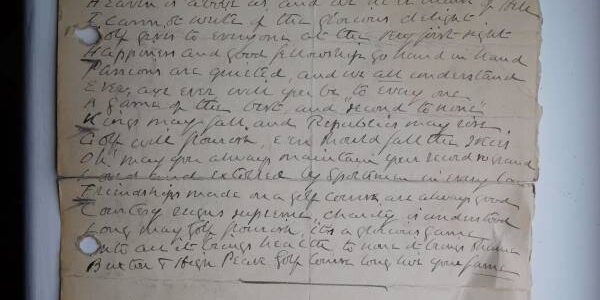 Heaven is always as and we of
I cannot write of the glorious delight
Golf gives to everyone at the very first sight
Happiness and good fellowship go hand in hand
Passions are quieted, and we all understand
Ever, aye ever will you be to every one
A game of the best and "second to none"
Kings may fall and Republics may rise
Golf will flourish, e'en should fall the skies
Oh, may you always maintain your record so grand
Loved and extolled by sportsmen in every land
Friendships made on a golf course are always good
Courtesy reigns supreme, charity is understood
Long may golf flourish, its a glorious game
Unto all it brings health to none it brings shame
Buxton & High Peak Golf Course long live your fame